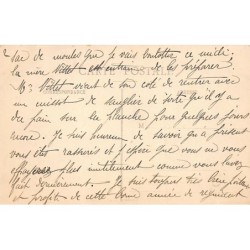 sac de moules que je vais boulotter ce midi.
la mère Villet est entrain de les préparer.
CARTE POSTALE
Mr Villet vient de son côté de rentrer avec
un cuissot de sanglier de sorte qu'il y a
du pain sur la planche pour quelques jours
encore. Je suis heureux de savoir qu'à présent
vous êtes rassurés et j'espère que vous ne vous
plus inutilement comme vous l'avez
fait dernièrement. Je suis toujours très
et profite de cette bonne année de régiment